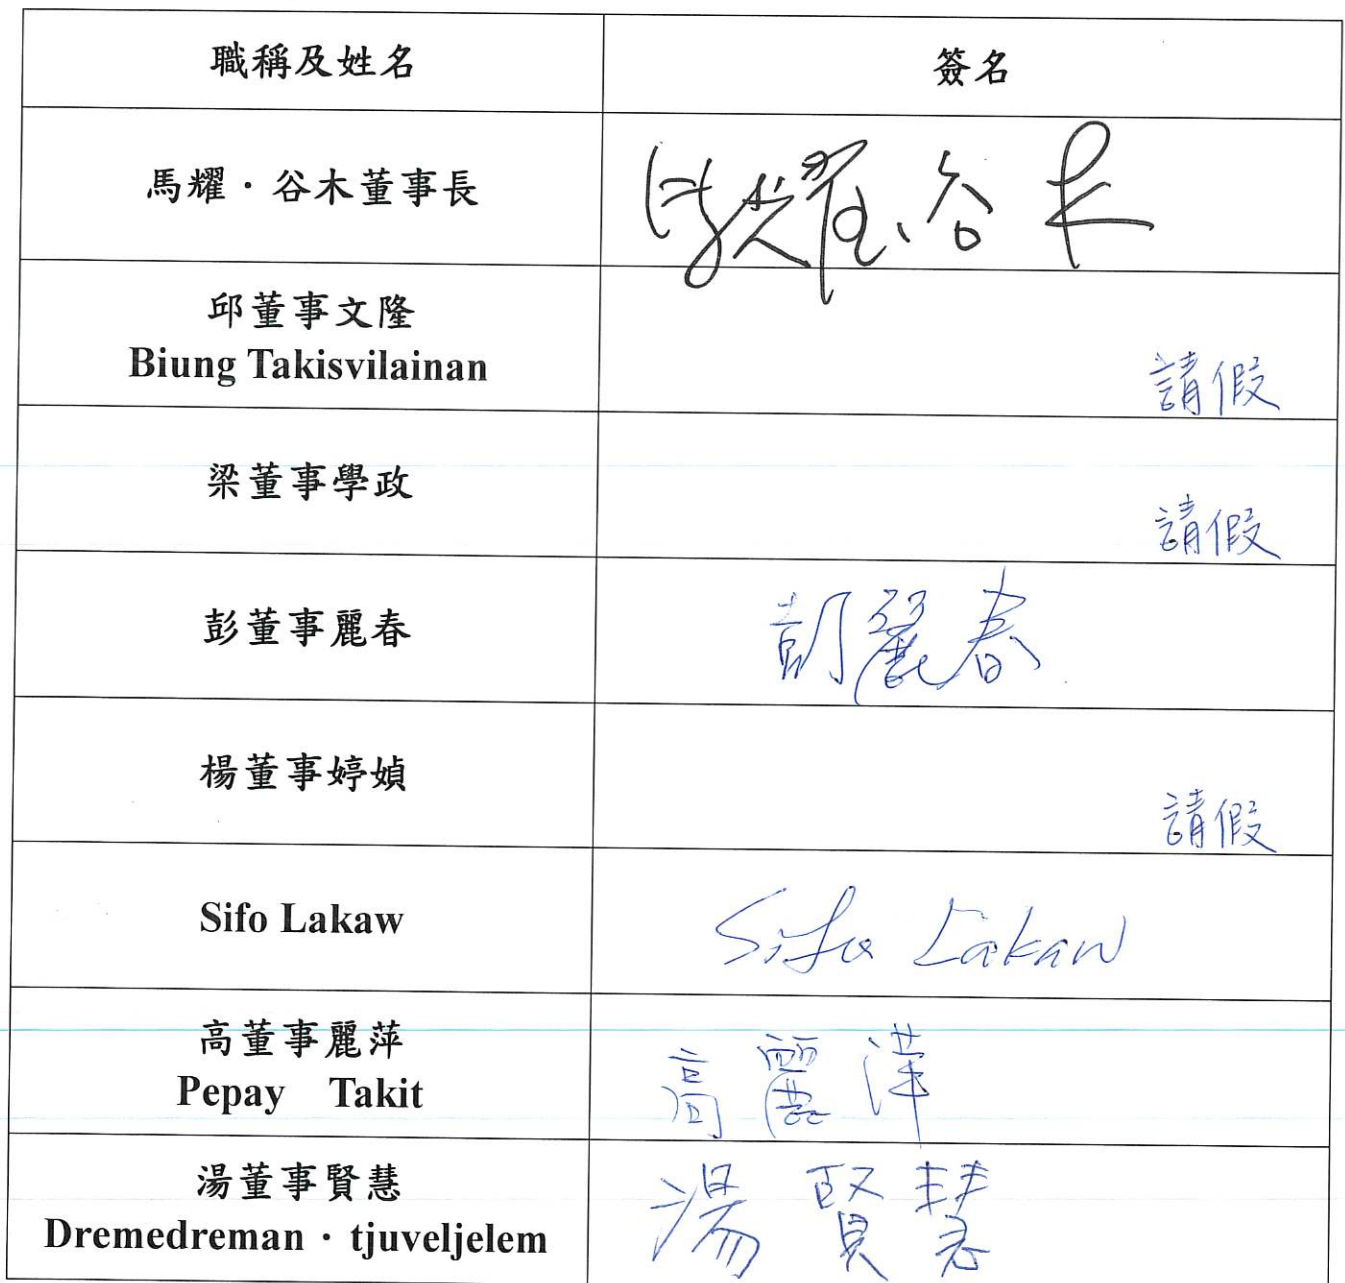 職稱及姓名
簽名
馬耀·谷木董事長
邱董事文隆
Biung Takisvilainan
請假
梁董事學政
請假
彭董事麗春
彭麗春
楊董事婷媜
請假
Sifo Lakaw
Sifo Lakaw
高董事麗萍
Pepay Takit
高麗萍
湯董事賢慧
Dremedreman·tjuveljelem
湯賢慧